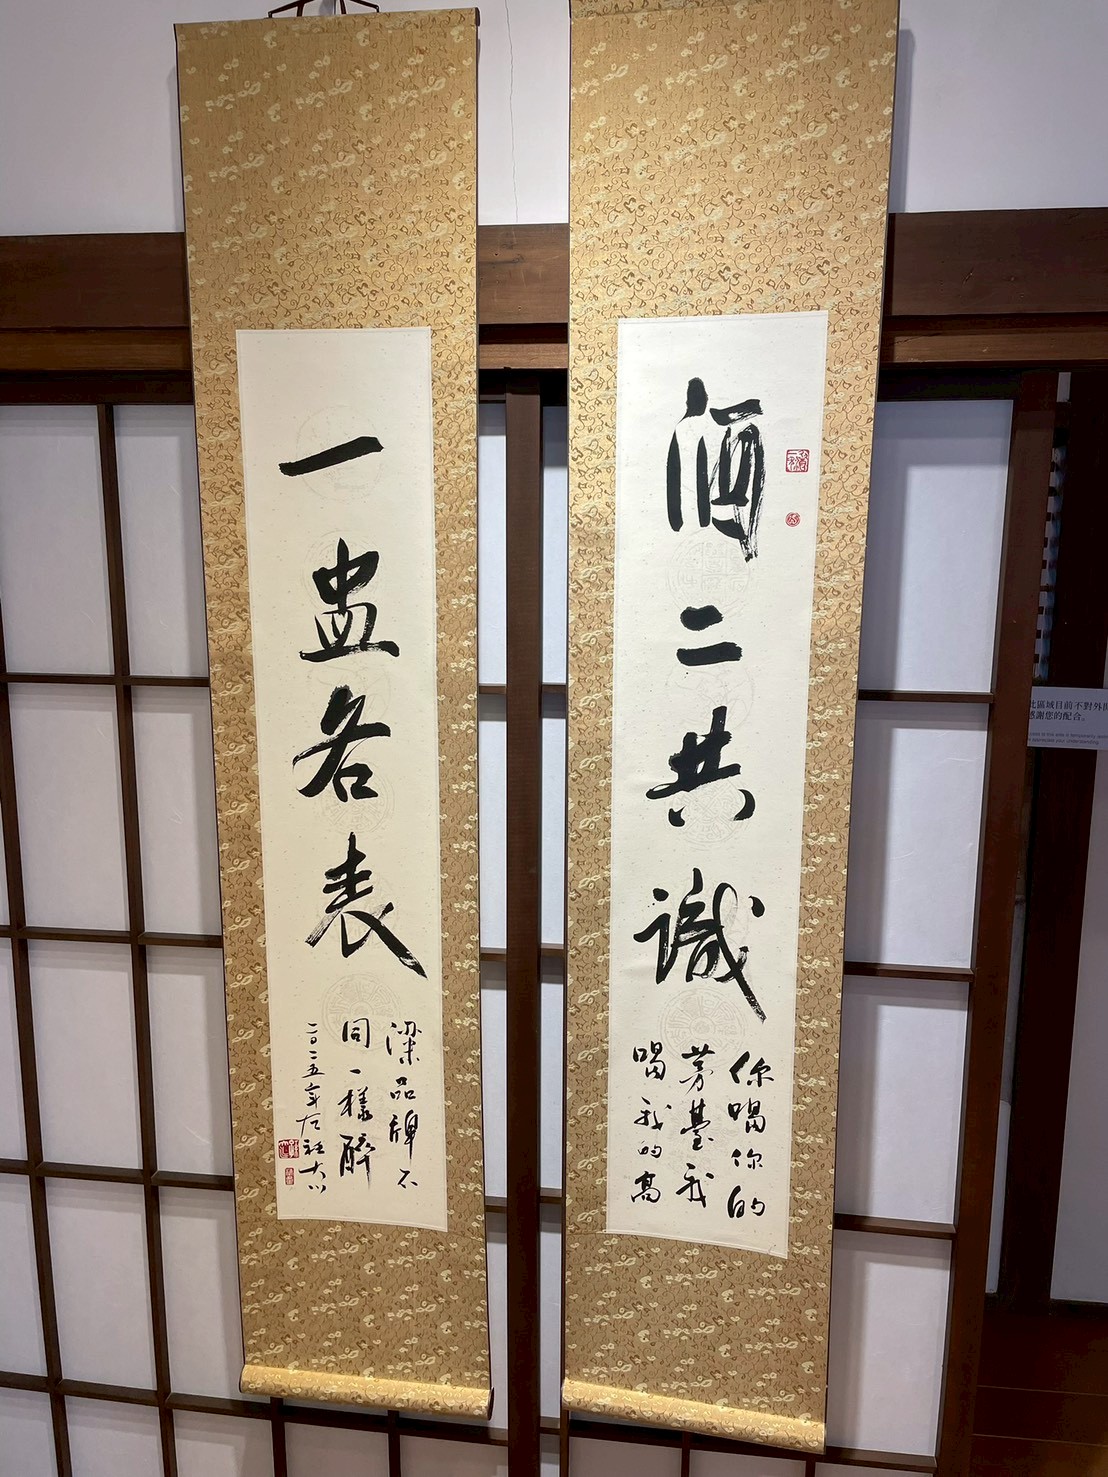 酒二共識
你喝你的
茅臺我
喝我的高
一盅各表
粱品牌不
同一樣醉
二〇二五年
此區域目前不對外開
感謝您的配合。